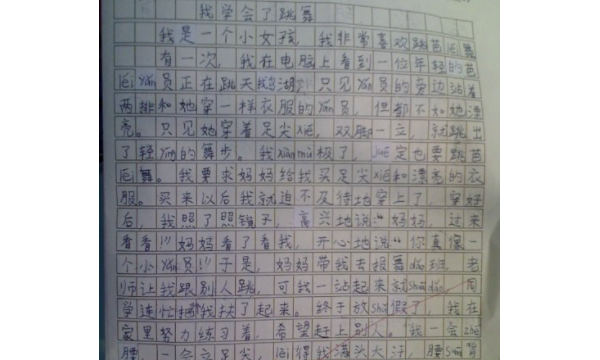 我学会了跳舞
我是一个小女孩，我非常喜欢跳芭lei舞
有一次，我在电脑上看到一位年轻的芭
lei yǎn员正在跳天鹅湖 只见yǎn员的旁边站着
两排和她穿一样衣服的yǎn员 但都不如她漂
亮。只见她穿着足尖xié，双脚一立，就跳出
了轻yíng的舞步。我xiànmù极了，jué定也要跳芭
lei舞。我要求妈妈给我买足尖xié和漂亮的衣
服。买来以后我就迫不及待地穿上了，穿好
后，我照了照镜子，高兴地说“妈妈，过来
看看！”妈妈看了看我，开心地说“你真像一
个小yǎn员！”于是，妈妈带我去报舞dǎo班，老
师让我跟别人跳，可我一站起来就shuāi dǎo，同
学连忙把我扶了起来。终于放shǔ假了，我在
家里努力练习着，希望赶上别人。我一会
腰，一会立足尖，lèi得我满头大汗，腰